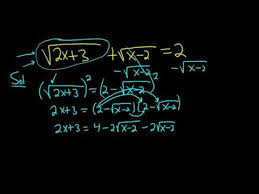 √(2x+3) + √(x-2) = 2
-√(x-2) -√(x-2)
Sol
(√(2x+3))² = (2-√(x-2))²
2x+3 = (2-√(x-2))(2-√(x-2))
2x+3 = 4-2√(x-2) -2√(x-2)